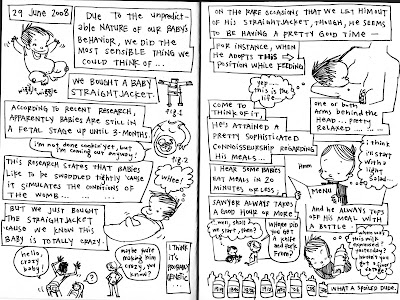 29 June 2008
DUE TO THE UNPREDICT-
ABLE NATURE OF OUR BABY'S
BEHAVIOR, WE DID THE
MOST SENSIBLE THING WE
COULD THINK OF ...
wiggle wiggle
WE BOUGHT A BABY
STRAIGHTJACKET.
fig. 1
ACCORDING TO RECENT RESEARCH,
APPARENTLY BABIES ARE STILL IN
A FETAL STAGE UP UNTIL 3-MONTHS
i'm not done cookin' yet, but
i'm coming out anyway!
fig. 2
THIS RESEARCH STATES THAT BABIES
LIKE TO BE SWADDLED TIGHTLY 'CAUSE
IT SIMULATES THE CONDITIONS OF
THE WOMB ....
whee!
BUT WE JUST BOUGHT
THE STRAIGHTJACKET
'CAUSE WE KNOW THIS
BABY IS TOTALLY CRAZY!
hello,
crazy
baby!
maybe you're
making him
crazy, you
know?
I THINK
IT'S
PROBABLY
GENETIC
ON THE RARE OCCASIONS THAT WE LET HIM OUT
OF HIS STRAIGHTJACKET, THOUGH, HE SEEMS
TO BE HAVING A PRETTY GOOD TIME —
FOR INSTANCE, WHEN
HE ADOPTS THIS
POSITION WHILE FEEDING
yep...
this is the
life.
one or both
arms behind
the head..
pretty
relaxed
COME TO
THINK OF IT,
HE'S ATTAINED A
PRETTY SOPHISTICATED
CONNOISSEURSHIP REGARDING
HIS MEALS ...
Hmm
i think
i'll start
with a
light
salad...
I HEAR SOME BABIES
EAT MEALS IN 20
MINUTES OR LESS.
MENU
SAWYER ALWAYS TAKES
A GOOD HOUR OR MORE
AND HE ALWAYS TOPS
OFF HIS MEAL WITH
A BOTTLE
well, shall
we start, then?
WHERE DID
YOU GET
A KNIFE
AND FORK
FROM?
when was
this milk
expressed?
yesterday?
haven't you
got any
vintage?
WHAT A SPOILED DUDE.